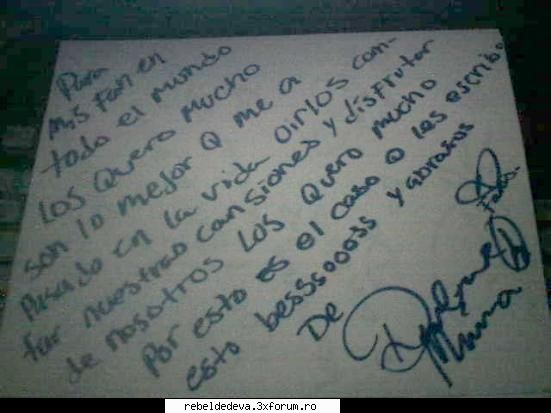 Para
Mis Fan en
todo el mundo
los quero mucho
son lo mejor q me a
pasado en la vida oirlos can-
tar nuestras cansiones y disfrutar
de nosotros los quero mucho
Por esto es el caso q les escribo
esto bessssooooss y abrazos
De
rebeldedeva.3xforum.ro